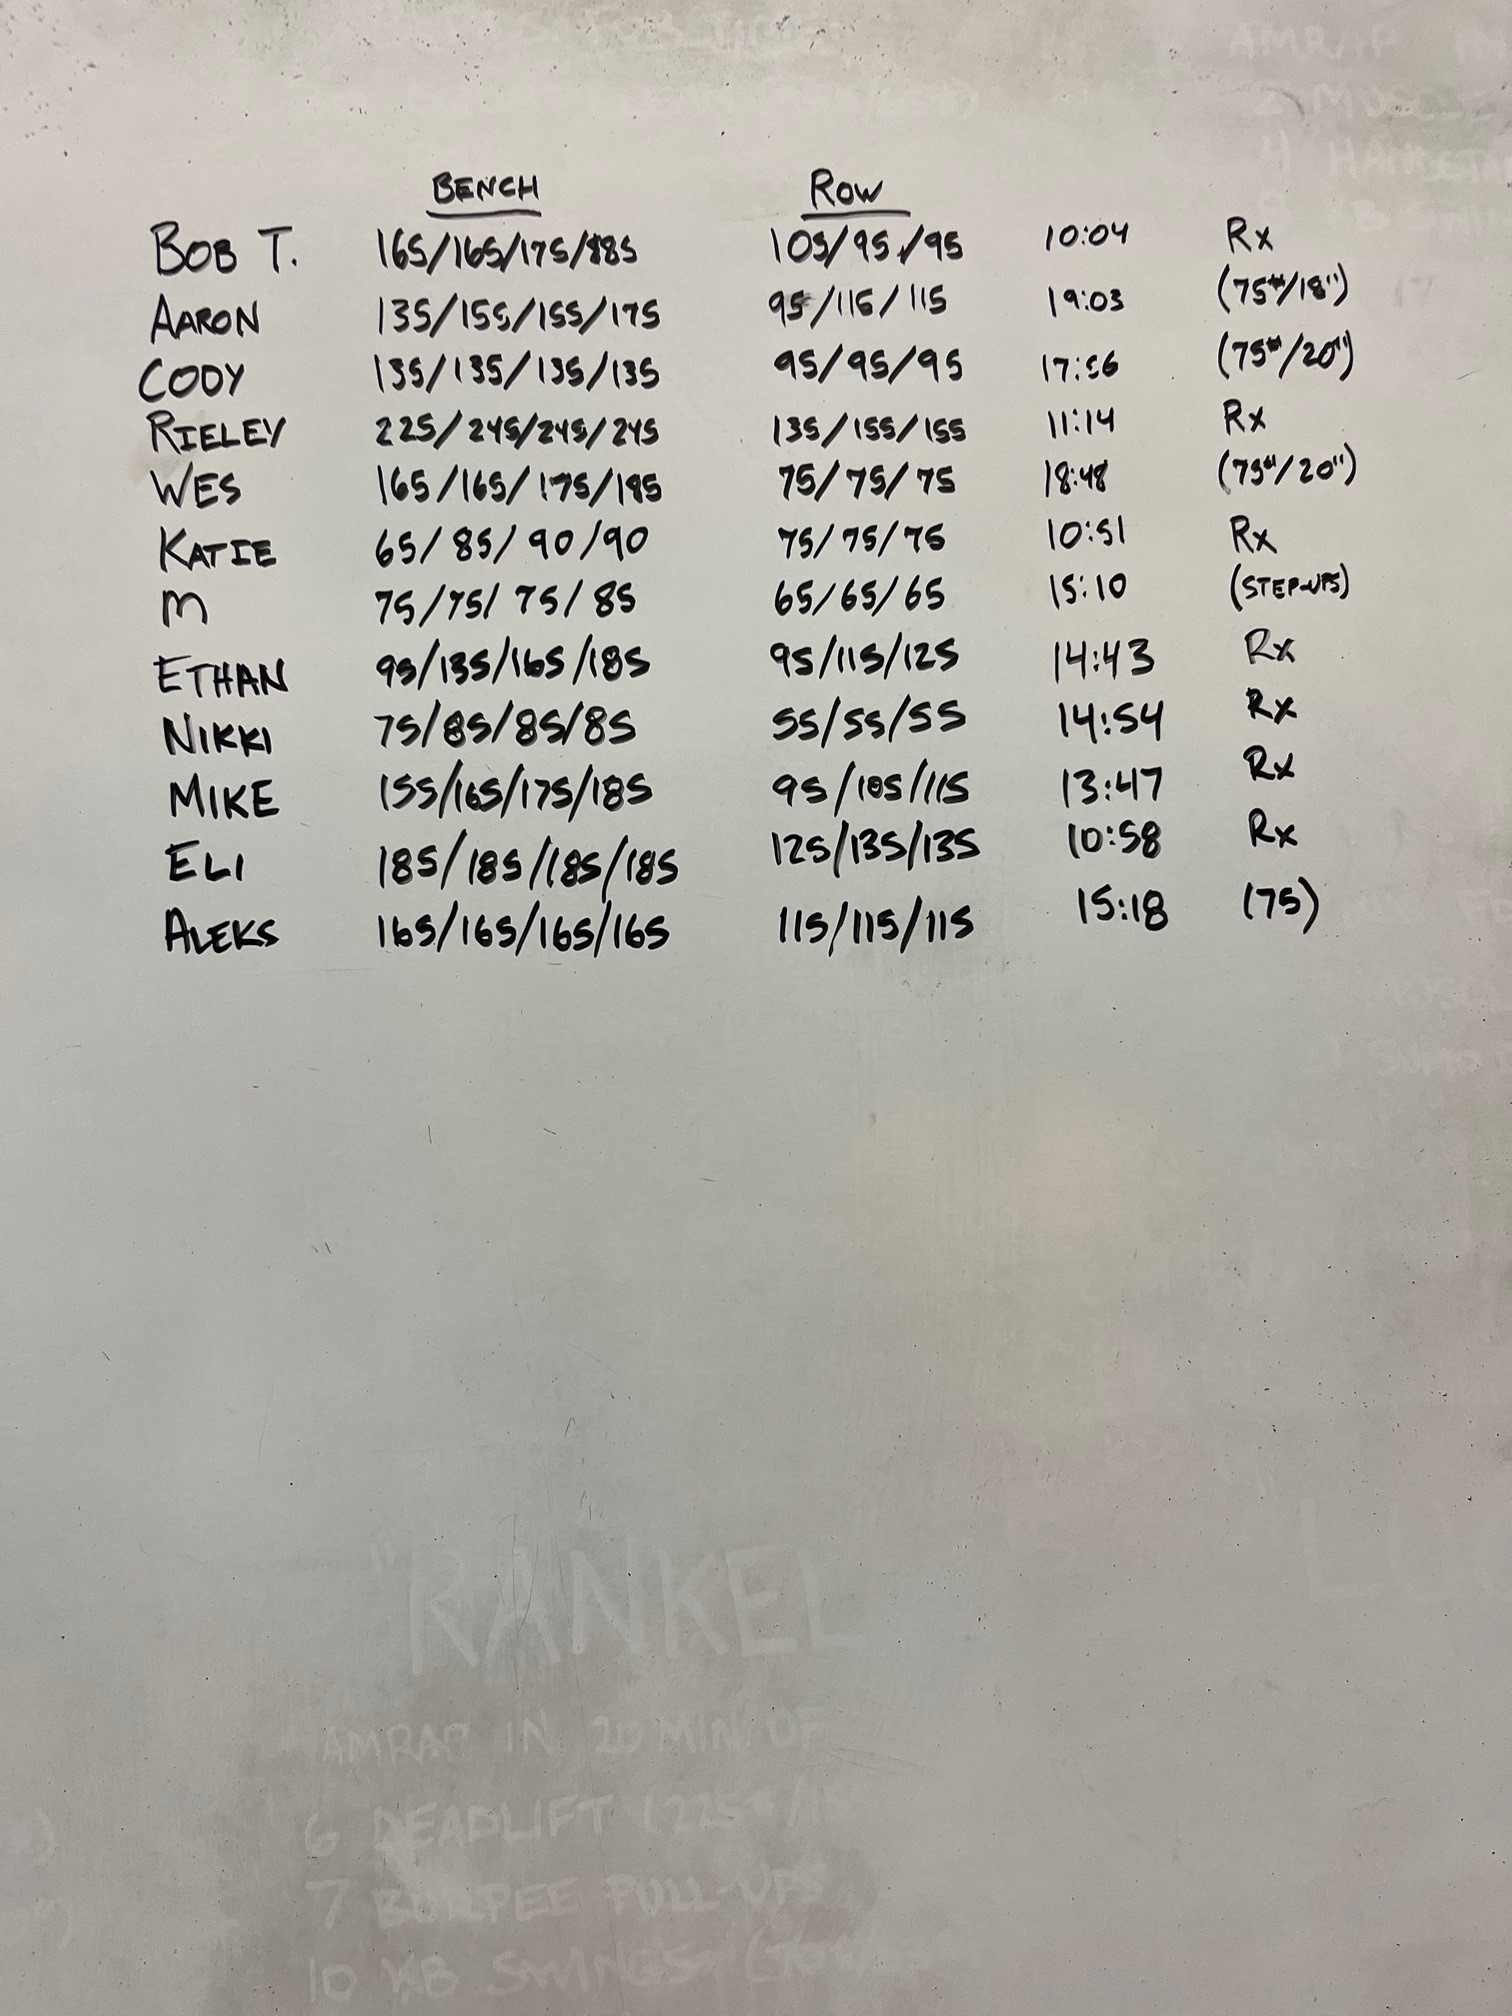 BENCH ROW
BOB T. 165/165/175/185 105/95/95 10:04 Rx
AARON 135/155/155/175 95/115/115 19:03 (75#/18")
CODY 135/135/135/135 95/95/95 17:56 (75#/20")
RIELEY 225/245/245/245 135/155/155 11:14 Rx
WES 165/165/175/185 75/75/75 18:48 (75#/20")
KATIE 65/85/90/90 75/75/75 10:51 Rx
M 75/75/75/85 65/65/65 15:10 (STEP-UPS)
ETHAN 95/135/165/185 95/115/125 14:43 Rx
NIKKI 75/85/85/85 55/55/55 14:54 Rx
MIKE 155/165/175/185 95/105/115 13:47 Rx
ELI 185/185/185/185 125/135/135 10:58 Rx
ALEKS 165/165/165/165 115/115/115 15:18 (75)
"RANKEL"
AMRAP IN 20 MIN OF
6 DEADLIFT (225#/
7 BURPEE PULL-UPS
10 KB SWINGS